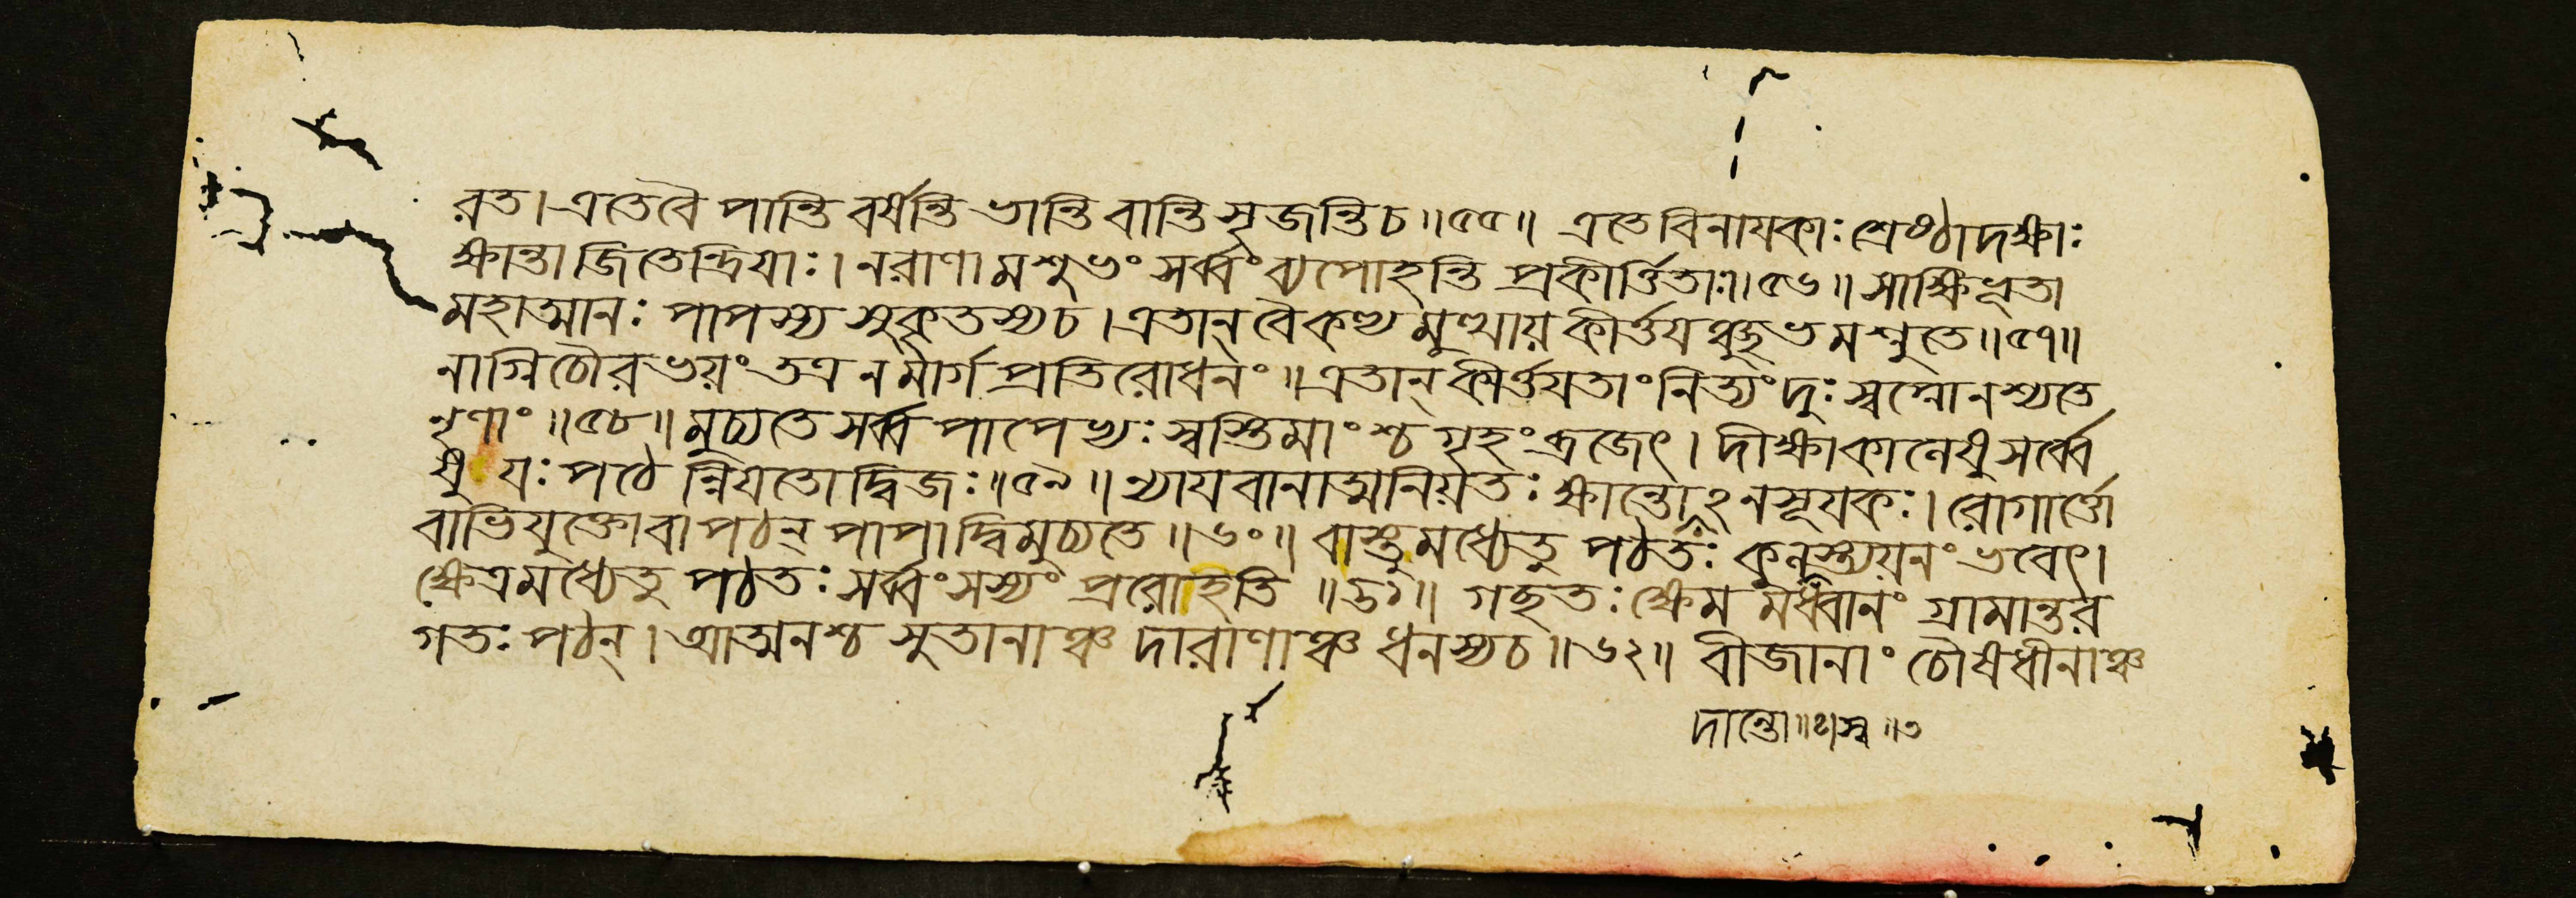 রত। এতেবৈ পান্তি বর্ষন্তি ভান্তি বান্তি সৃজন্তি চ॥৫৫॥ এতে বিনায়কাঃ শ্রেষ্ঠা দক্ষাঃ
ক্ষান্তা জিতেন্দ্রিয়াঃ। নরাণামশুভং সর্ব্বং ব্যপোহন্তি প্রকীর্ত্তিতাঃ॥৫৬॥ সাক্ষিভূতা
মহাত্মানঃ পাপস্য সুকৃতস্য চ। এতান্ বৈ কল্য মুত্থায় কীর্ত্তয়ঞ্ছুভমশ্নুতে॥৫৭॥
নাগ্নিচৌরভয়ং তত্র ন মার্গপ্রতিরোধনং॥ এতান্ কীর্ত্তয়তাং নিত্যং দুঃস্বপ্নো নশ্যতে
নৃণাং॥৫৮॥ মুচ্যতে সর্ব্বপাপেভ্যঃ স্বস্তিমাংশ্চ গৃহং ব্রজেৎ। দীক্ষাকালেষু সর্ব্বে
ষু যঃ পঠেন্নিয়তো দ্বিজঃ॥৫৯॥ ন্যায়বানাত্মনিরতঃ ক্ষান্তোঽনসূয়কঃ। রোগার্ত্তো
বাভিযুক্তো বা পঠন্ পাপাদ্বিমুচ্যতে॥৬০॥ বাস্তুমধ্যেতু পঠতঃ কুলস্ত্যয়নং ভবেৎ।
ক্ষেত্রমধ্যেতু পঠতঃ সর্ব্বং সস্যং প্ররোহতি॥৬১॥ গচ্ছতঃ ক্ষেমমধ্বানং গ্রামান্তর
গতঃ পঠন্। আত্মনশ্চ সুতানাঞ্চ দারাণাঞ্চ ধনস্য চ॥৬২॥ বীজানাং চৌষধীনাঞ্চ
দান্তো॥